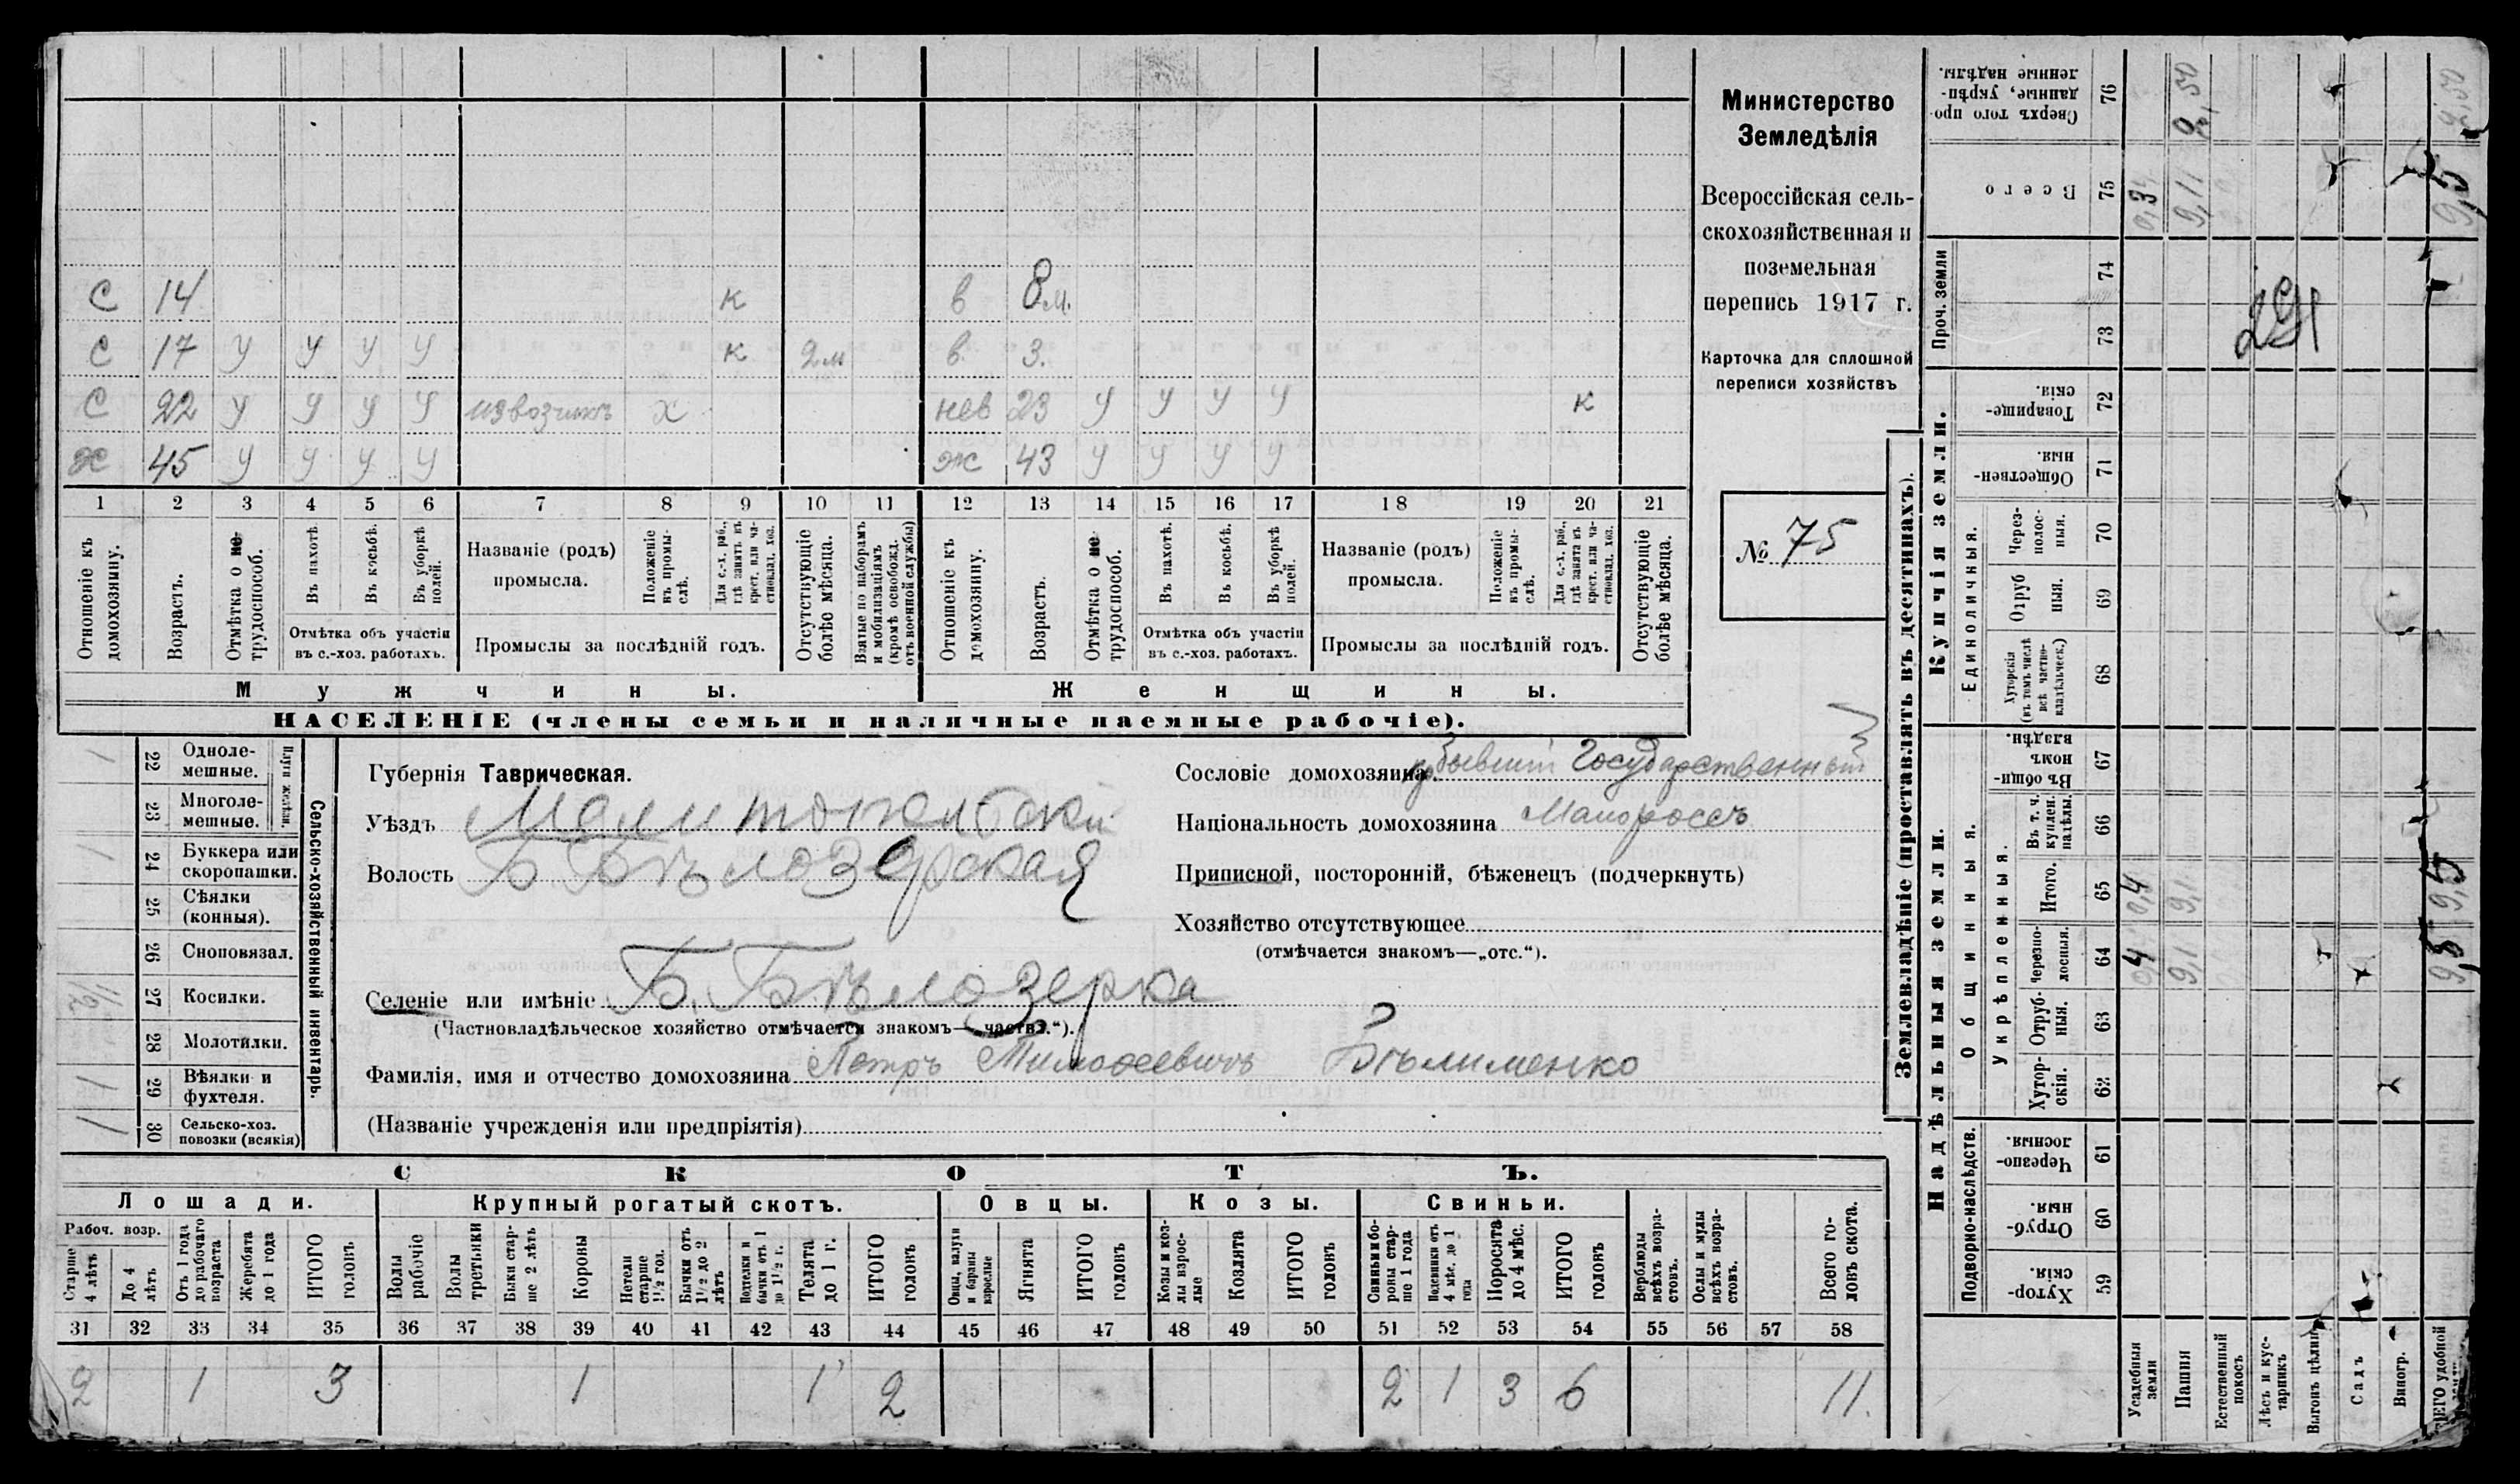 Министерство
Земледѣлія
Всероссійская сель-
скохозяйственная и
поземельная
перепись 1917 г.
Карточка для сплошной
переписи хозяйствъ
№ 75
С 14 к в 8 м.
С 17 у у у у к 2 м в 3.
С 22 у у у у извозчикъ х нев 23 у у у у к
х 45 у у у у ж 43 у у у у
1 2 3 4 5 6 7 8 9 10 11 12 13 14 15 16 17 18 19 20 21
Отношеніе къ домохозяину.
Возрастъ.
Отмѣтка о не-трудоспособ.
Въ пахотѣ.
Въ косьбѣ.
Въ уборкѣ полей.
Отмѣтка объ участіи въ с.-хоз. работахъ.
Названіе (родъ) промысла.
Положеніе въ промы-слѣ.
Для с.-х. раб., гдѣ занятъ въ крест. или ча-стновлад. хоз.
Промыслы за послѣдній годъ.
Отсутствующіе болѣе мѣсяца.
Взятые по наборамъ и мобилизаціямъ (кромѣ освобожд. отъ военной службы)
Отношеніе къ домохозяину.
Возрастъ.
Отмѣтка о не-трудоспособ.
Въ пахотѣ.
Въ косьбѣ.
Въ уборкѣ полей.
Отмѣтка объ участіи въ с.-хоз. работахъ.
Названіе (родъ) промысла.
Положеніе въ промы-слѣ.
Для с.-х. раб., гдѣ занята въ крест. или ча-стновлад. хоз.
Промыслы за послѣдній годъ.
Отсутствующіе болѣе мѣсяца.
Мужчины. Женщины.
НАСЕЛЕНІЕ (члены семьи и наличные наемные рабочіе).
Сельско-хозяйственный инвентарь.
Плуги желѣзн.
1 22 Одноле-мешные.
23 Многоле-мешные.
1 24 Буккера или скоропашки.
25 Сѣялки (конныя).
26 Сноповязал.
27 Косилки.
28 Молотилки.
1 29 Вѣялки и фухтеля.
1 30 Сельско-хоз. повозки (всякія)
Губернія Таврическая.
Уѣздъ Мелитопольскій
Волость Б. Бѣлозерская
Селеніе или имѣніе Б. Бѣлозерка
(Частновладѣльческое хозяйство отмѣчается знакомъ—„частв.“).
Фамилія, имя и отчество домохозяина Петръ Тимофеевичъ Бѣлименко
(Названіе учрежденія или предпріятія)
Сословіе домохозяина бывшій Государственный
Національность домохозяина Малороссъ
Приписной, посторонній, бѣженецъ (подчеркнуть)
Хозяйство отсутствующее
(отмѣчается знакомъ—„отс.“).
СКОТЪ.
Лошади. Крупный рогатый скотъ. Овцы. Козы. Свиньи.
Рабоч. возр.
Старше 4 лѣтъ
До 4 лѣтъ
Отъ 1 года до рабочаго возраста
Жеребята до 1 года
ИТОГО головъ
Волы рабочіе
Волы третьяки
Быки стар-ше 2 лѣтъ
Коровы
Нетели старше 1½ год.
Бычки отъ 1½ до 2 лѣтъ
Нетелки и бычки отъ 1 до 1½ г.
Телята до 1 г.
ИТОГО головъ
Овцы, валухи и бараны взрослые
Ягнята
ИТОГО головъ
Козы и коз-лы взрос-лые
Козлята
ИТОГО головъ
Свиньи и бо-ровы стар-ше 1 года
Подсвинки отъ 4 мѣс. до 1 года
Поросята до 4 мѣс.
ИТОГО головъ
Верблюды всѣхъ возра-стовъ.
Ослы и мулы всѣхъ возра-стовъ.
Всего го-ловъ скота.
31 32 33 34 35 36 37 38 39 40 41 42 43 44 45 46 47 48 49 50 51 52 53 54 55 56 57 58
2 1 3 1 1 2 2 1 3 6 11.
Землевладѣніе (проставлять въ десятинахъ).
Надѣльныя земли. Купчія земли. Проч. земли
Подворно-наслѣдств.
Общинныя.
Укрѣпленныя.
Единоличныя.
59 Хутор-скія.
60 Отруб-ныя.
61 Черезпо-лосныя.
62 Хутор-скія.
63 Отруб-ныя.
64 Черезпо-лосныя. 0,4 9,11 9,5
65 Итого. 0,4 9,11 9,5
66 Въ т. ч. куплен. надѣлы.
67 Въ общи-номъ владѣн.
68 Хуторскія (въ томъ числѣ всѣ частно-владѣльческ.)
69 Отруб ныя.
70 Через-полос-ныя.
71 Обществен-ныя.
72 Товарище-скія.
73
74
75 Всего 9,11 9,5
76 Сверхъ того про-данные, укрѣп-ленные надѣлы. 9,50
Усадебныя земли
Пашня
Естественный покосъ
Лѣсъ и кус-тарникъ
Выгонъ цѣлин
Садъ
Виногр.